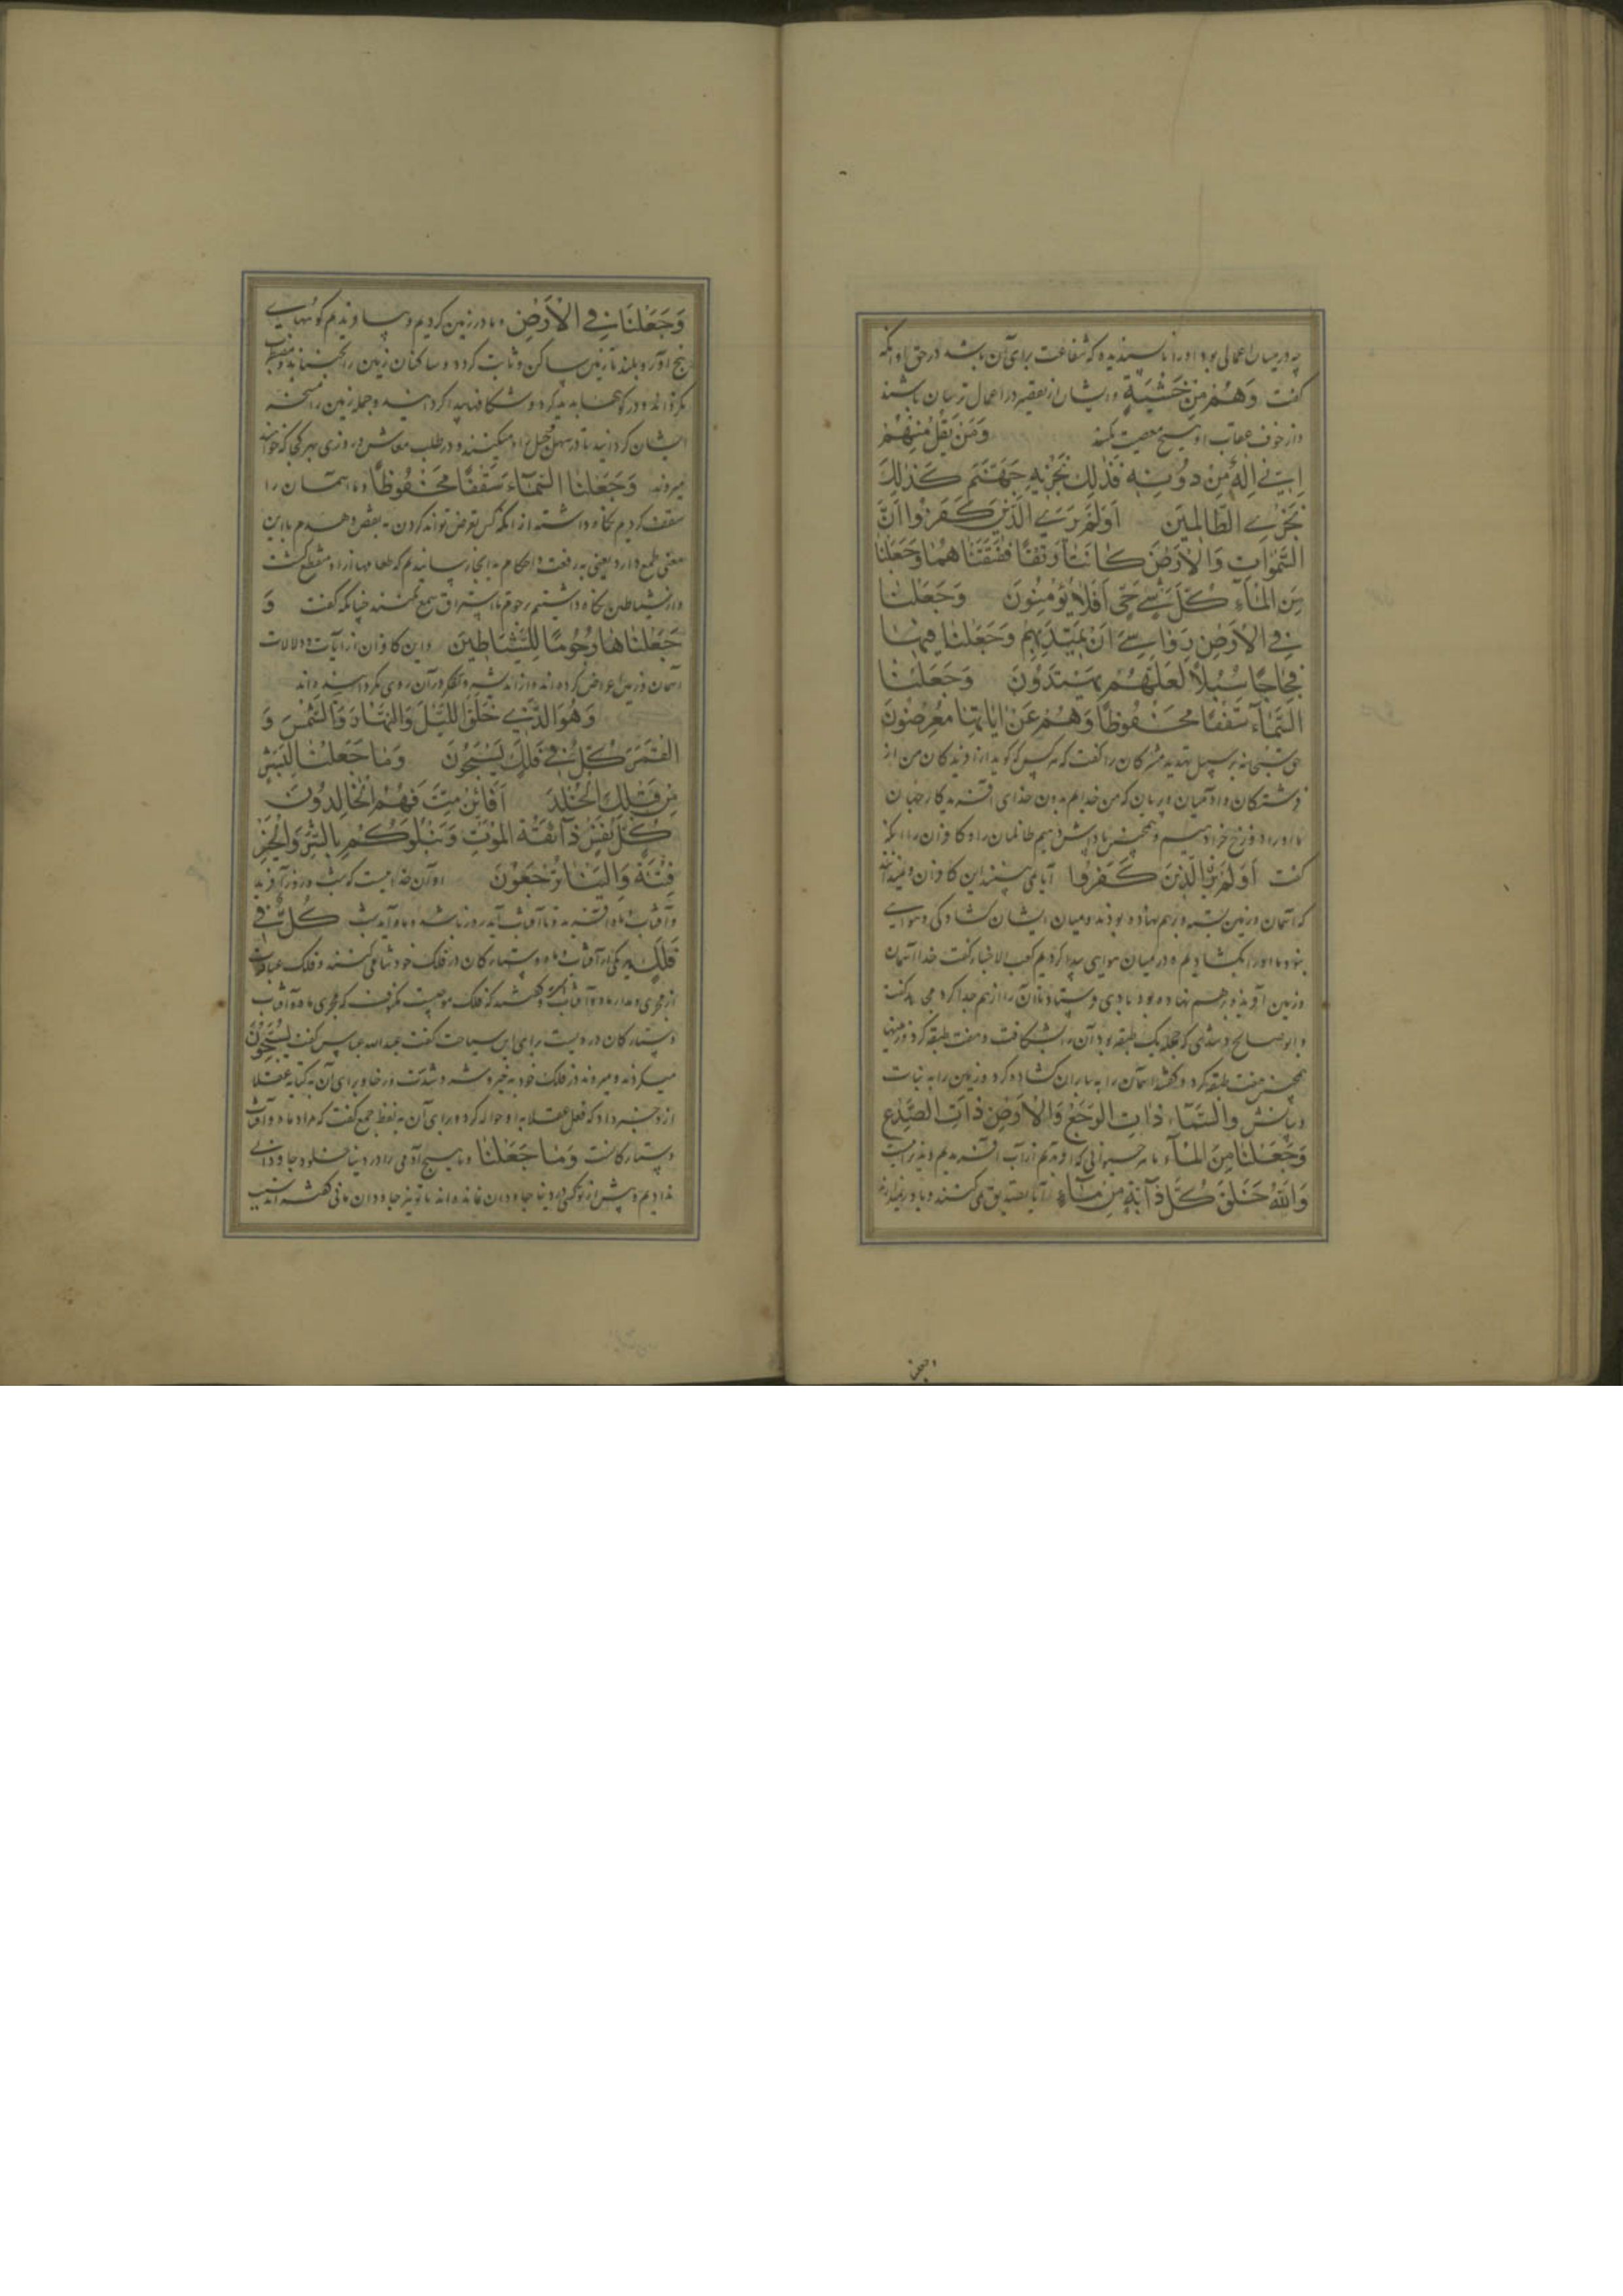 چه در میان اعمالی بود او را ناپسندیده که شفاعت برای آن باشد در حق او آنکه
گفت وَهُمْ مِنْ خَشْيَتِهِ و ایشان از تقصیر در اعمال ترسان باشند
و از خوف عقاب او هیچ معصیت نکنند وَمَنْ يَقُلْ مِنْهُمْ
اِنِّي اِلٰهٌ مِنْ دُونِهِ فَذٰلِكَ نَجْزِيهِ جَهَنَّمَ كَذٰلِكَ
نَجْزِي الظَّالِمِينَ اَوَلَمْ يَرَى الَّذِينَ كَفَرُوا اَنَّ
السَّمٰوَاتِ وَالْاَرْضَ كَانَتَا رَتْقًا فَفَتَقْنَاهُمَا وَجَعَلْنَا
مِنَ الْمَاءِ كُلَّ شَيْءٍ حَيٍّ اَفَلَا يُؤْمِنُونَ وَجَعَلْنَا
فِي الْاَرْضِ رَوَاسِيَ اَنْ تَمِيدَ بِهِمْ وَجَعَلْنَا فِيهَا
فِجَاجًا سُبُلًا لَعَلَّهُمْ يَهْتَدُونَ وَجَعَلْنَا
السَّمَاءَ سَقْفًا مَحْفُوظًا وَهُمْ عَنْ اٰيَاتِهَا مُعْرِضُونَ
حق سبحانه بر سبیل تهدید مشرکان را گفت که هر کس که گوید از آفریدگان من از
فرشتگان و آدمیان و پریان که من خدایم بدون خدای آفریدگار جهان
ما او را دوزخ جزا دهیم و همچنین پاداش دهیم ظالمان را و کافران را آنکه
گفت اَوَلَمْ يَرَ الَّذِينَ كَفَرُوا آیا نمی بینند این کافران و نمیدانند
که آسمان و زمین بسته و بر هم نهاده بودند و میان ایشان گشادگی و هوایی
نبود ما او را بگشادیم و در میان هوای پیدا کردیم کعب الاحبار گفت خدا آسمان
و زمین آفرید و بر هم نهاده بود بادی فرستاد تا آن را از هم جدا کرد مجاهد گفت
و ابو صالح و سدی که جمله یک طبقه بود آن را بشکافت و هفت طبقه کرد و زمینها
همچنین هفت طبقه کرد و گفته‌اند آسمان را به باران گشاده کرد و زمین را به نبات
وَالسَّمَاءِ ذَاتِ الرَّجْعِ وَالْاَرْضِ ذَاتِ الصَّدْعِ
وَجَعَلْنَا مِنَ الْمَاءِ ما هر حیوانی که آفریدیم از آب آفریدیم
وَاللّٰهُ خَلَقَ كُلَّ دَابَّةٍ مِنْ مَاءٍ آیا تصدیق نمی کنند و باور نمیدارند
وَجَعَلْنَا فِي الْاَرْضِ و ما در زمین کردیم و بیافریدیم کوههای
بیخ آور و بلند تا زمین ساکن و ثابت گردد و ساکنان زمین را نجنباند و مضطرب
نگرداند و در کوهها پدید کرد و شکافها پیدا گردانید و جمله زمین را مسخر
ایشان گردانید تا در سهل و جبل او میکنند و در طلب معاش و روزی بهر کجا که خواهند
میروند وَجَعَلْنَا السَّمَاءَ سَقْفًا مَحْفُوظًا و ما آسمان را
سقف کردیم نگاه داشته از آنکه کس تعرض تواند کردن به نقص و هدم یا این
معنی طمع دارد یعنی به رفعت و احکام به آنجا رسانیدیم که طمعها از او منقطع گشت
و از شیاطین نگاه داشتیم به رجوم تا استراق سمع نکنند چنانکه گفت وَ
جَعَلْنَاهَا رُجُومًا لِلشَّيَاطِينَ و این کافران از آیات و دلالات
آسمان و زمین اعراض کرده اند و از اندیشه و تفکر در آن روی بگردانیده اند
وَهُوَ الَّذِي خَلَقَ اللَّيْلَ وَالنَّهَارَ وَالشَّمْسَ وَ
الْقَمَرَ كُلٌّ فِي فَلَكٍ يَسْبَحُونَ وَمَا جَعَلْنَا لِبَشَرٍ
مِنْ قَبْلِكَ الْخُلْدَ اَفَاِنْ مِتَّ فَهُمُ الْخَالِدُونَ
كُلُّ نَفْسٍ ذَائِقَةُ الْمَوْتِ وَنَبْلُوَكُمْ بِالشَّرِّ وَالْخَيْرِ
فِتْنَةً وَاِلَيْنَا تُرْجَعُونَ او آن خدائیست که شب و روز آفرید
و آفتاب و ماه آفرید تا آفتاب آیت روز باشد و ماه آیت شب كُلٌّ فِي
فَلَكٍ هر یکی از آفتاب و ماه و ستارگان در فلک خود شنا می کنند و فلک عبارت
از مجری و مدار ماه و آفتابست و گفته‌اند که فلک موجیست مکفوف که مجری ماه و آفتاب
و ستارگان در ویست برای این سباحت گفت عبدالله عباس گفت يَسْبَحُونَ
میگردند و میروند در فلک خود به خیر و شر و شدت و رخا و برای آن به کنایه عقلا
از وی خبر داد که فعل عقلا به او حواله کرد و برای آن به لفظ جمع گفت که مراد ماه و آفتاب
و ستارگانست وَمَا جَعَلْنَا و ما هیچ آدمی را در دنیا خلود و جاودانی
ندادیم و پیش از تو کسی در دنیا جاودان نمانده اند تا تو نیز جاودان مانی گفته‌اند سبب